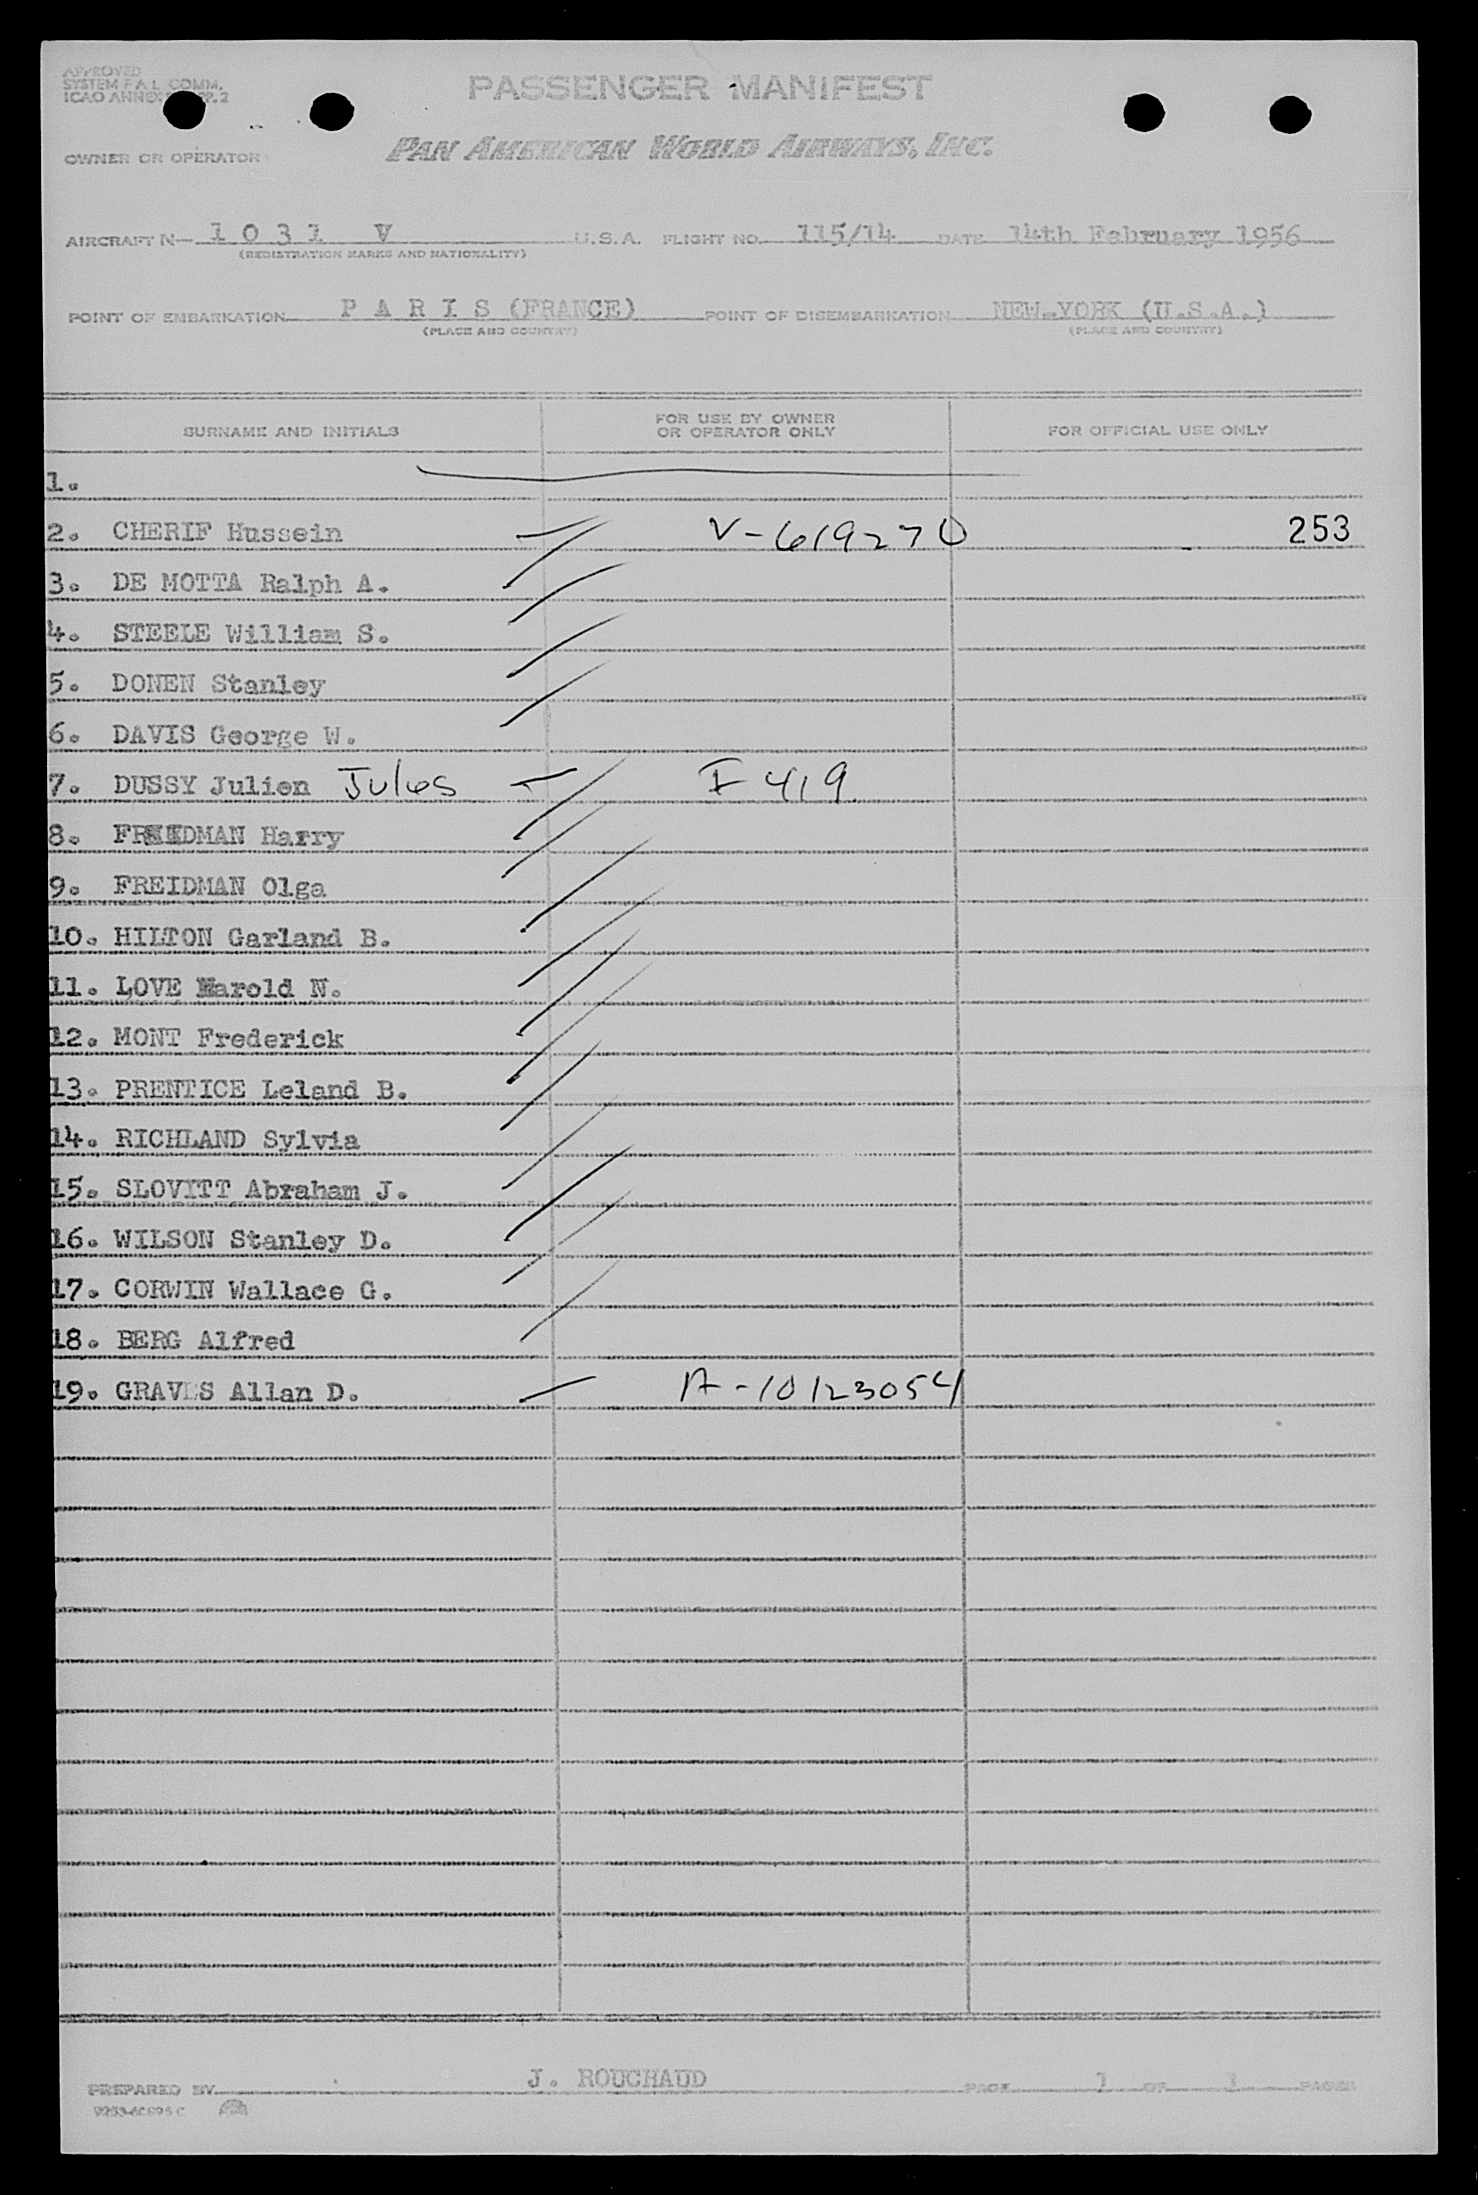 APPROVED
SYSTEM F A L COMM.
ICAO ANNEX
PASSENGER MANIFEST
OWNER OR OPERATOR
PAN AMERICAN WORLD AIRWAYS, INC.
AIRCRAFT N— 1 0 3 1 V U.S.A. FLIGHT NO. 115/14 DATE 14th February 1956
(REGISTRATION MARKS AND NATIONALITY)
POINT OF EMBARKATION P A R I S (FRANCE) POINT OF DISEMBARKATION NEW-YORK (U.S.A.)
(PLACE AND COUNTRY) (PLACE AND COUNTRY)
SURNAME AND INITIALS FOR USE BY OWNER OR OPERATOR ONLY FOR OFFICIAL USE ONLY
1.
2. CHERIF Hussein V-619270 253
3. DE MOTTA Ralph A.
4. STEELE William S.
5. DONEN Stanley
6. DAVIS George W.
7. DUSSY Julien Jules I-419
8. FREIDMAN Harry
9. FREIDMAN Olga
10. HILTON Garland B.
11. LOVE Harold N.
12. MONT Frederick
13. PRENTICE Leland B.
14. RICHLAND Sylvia
15. SLOVITT Abraham J.
16. WILSON Stanley D.
17. CORWIN Wallace G.
18. BERG Alfred
19. GRAVES Allan D. A-10123054
PREPARED BY J. ROUCHAUD PAGE 1 OF 1 PAGES